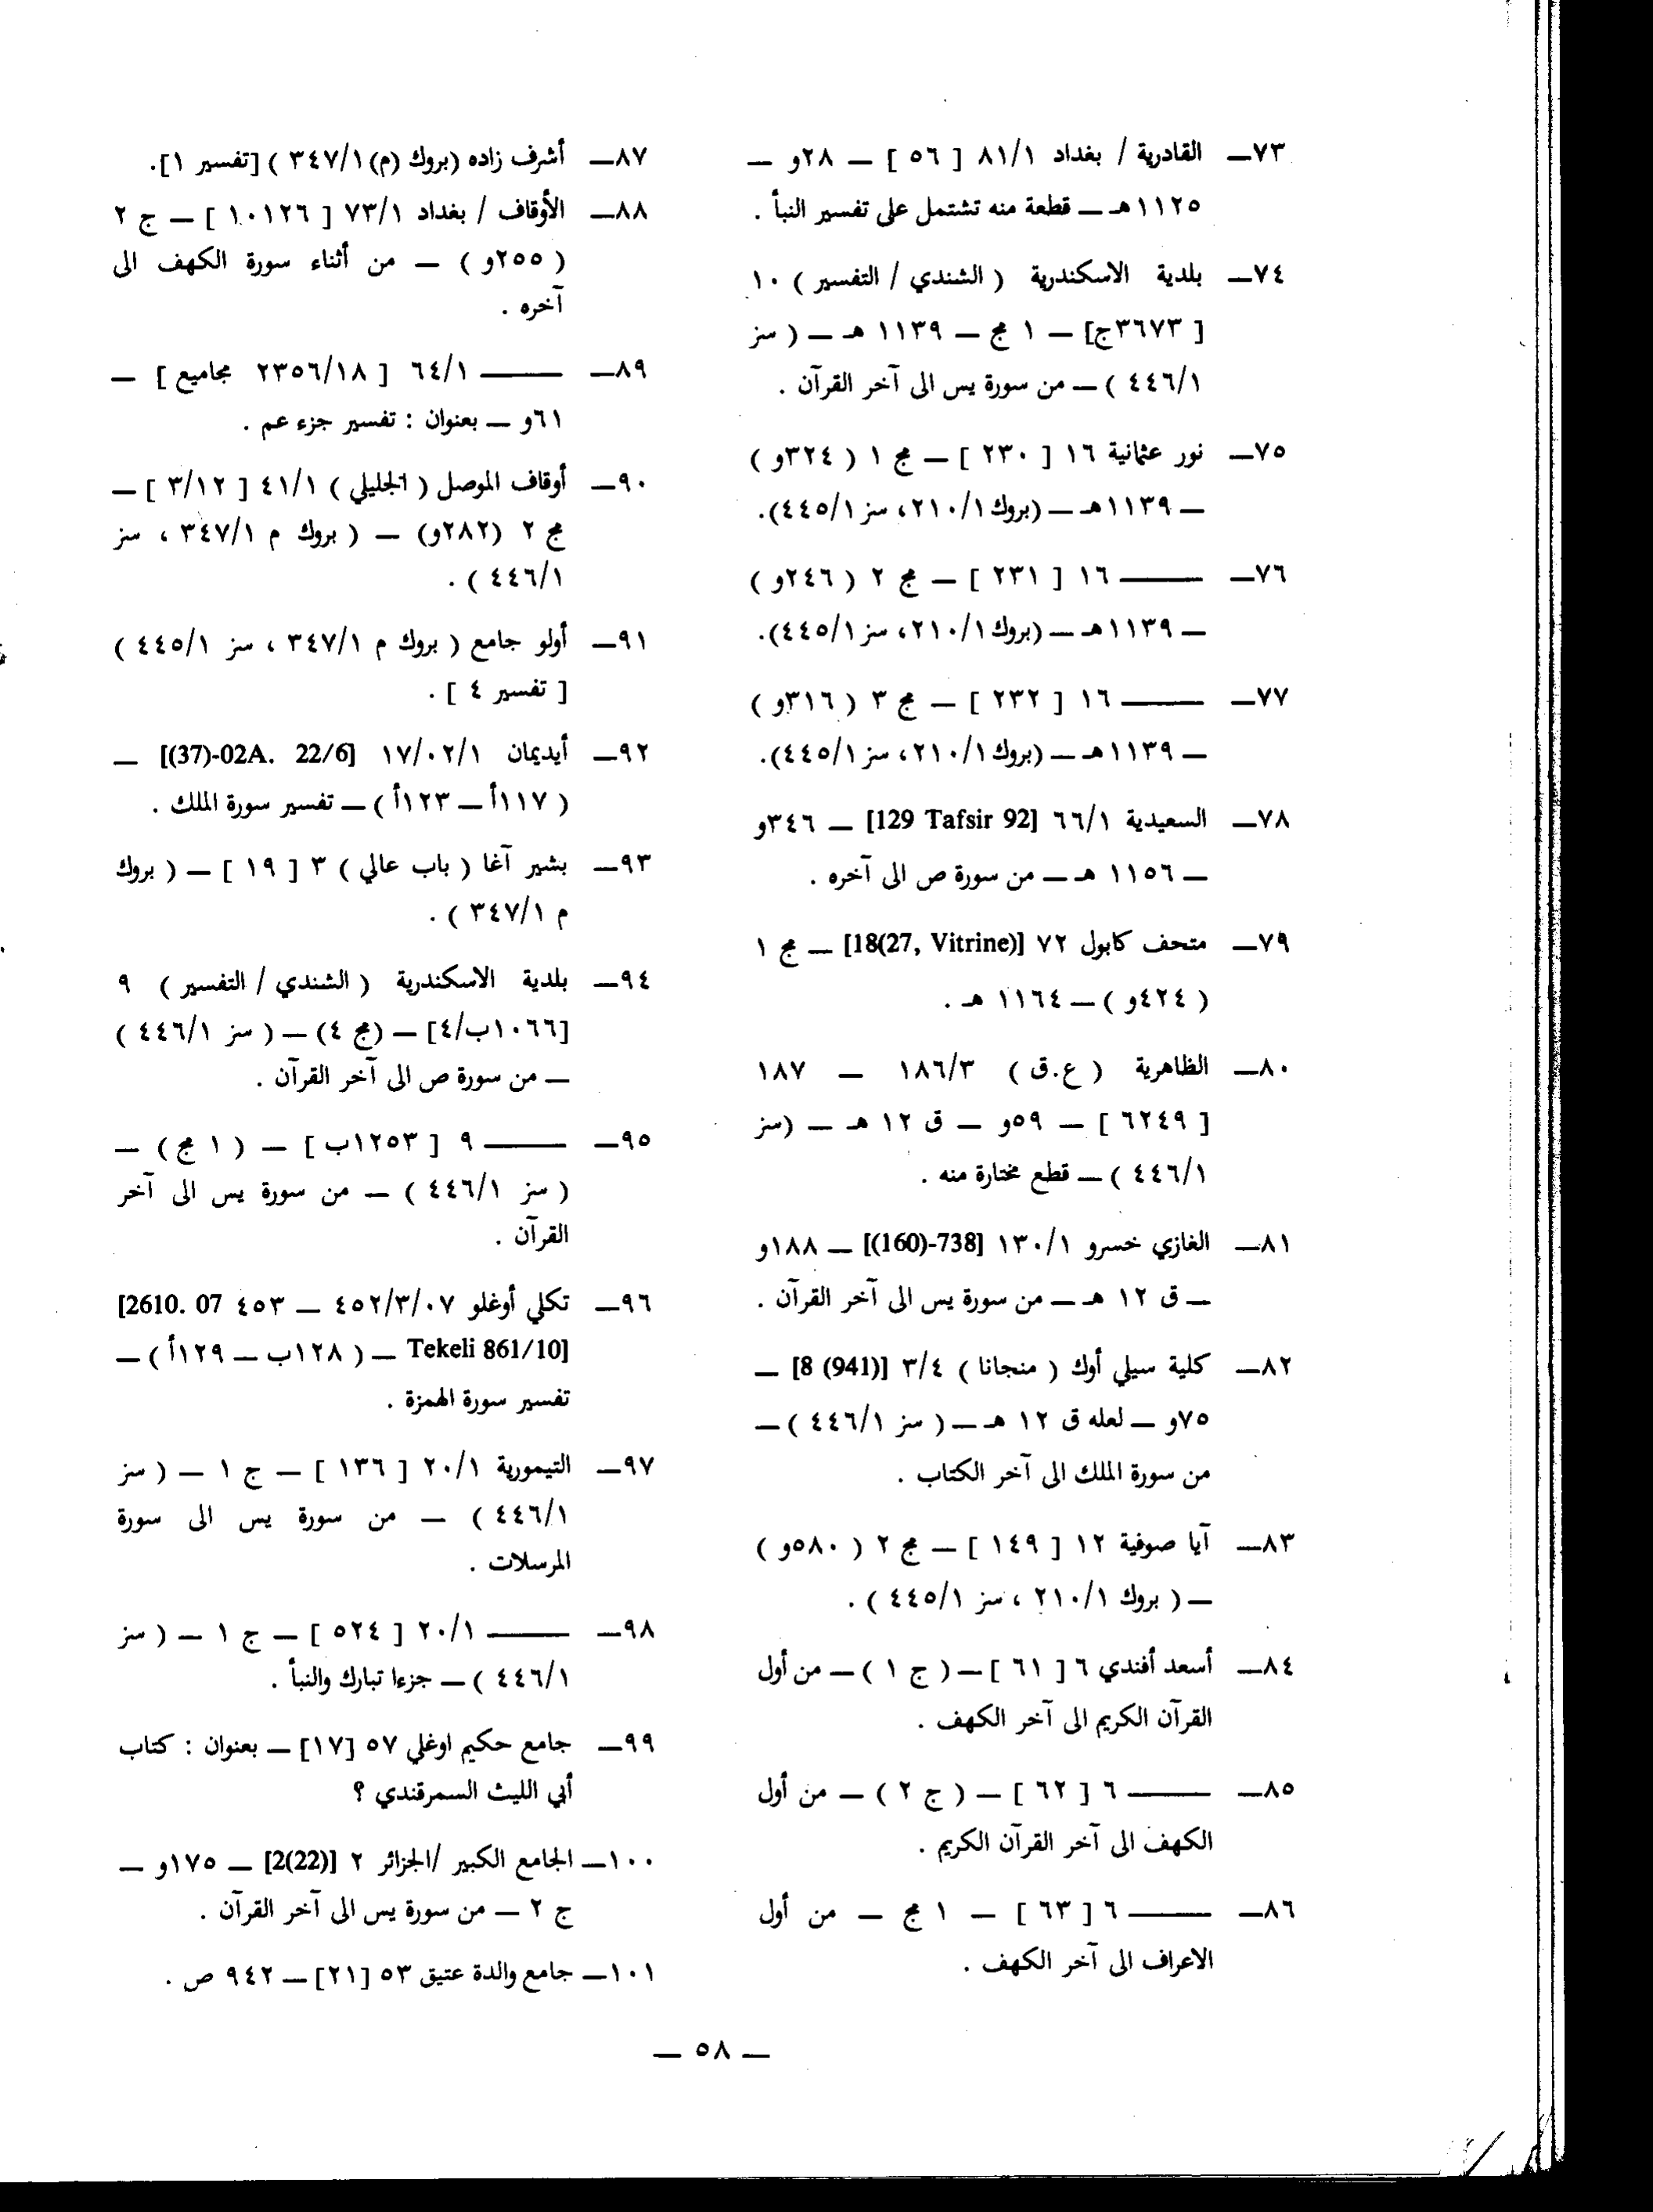 ٧٣— القادرية / بغداد ٨١/١ [ ٥٦ ] — ٢٨و —
١١٢٥هـ — قطعة منه تشتمل على تفسير النبأ .
٧٤— بلدية الاسكندرية ( الشندي / التفسير ) ١٠
[ ٣٦٧٣ج] — ١ مج — ١١٣٩ هـ — ( سز
٤٤٦/١ ) — من سورة يس الى آخر القرآن .
٧٥— نور عثمانية ١٦ [ ٢٣٠ ] — مج ١ ( ٣٢٤و )
— ١١٣٩هـ — (بروك ٢١٠/١، سز ٤٤٥/١).
٧٦— ——— ١٦ [ ٢٣١ ] — مج ٢ ( ٢٤٦و )
— ١١٣٩هـ — (بروك ٢١٠/١، سز ٤٤٥/١).
٧٧— ——— ١٦ [ ٢٣٢ ] — مج ٣ ( ٣١٦و )
— ١١٣٩هـ — (بروك ٢١٠/١، سز ٤٤٥/١).
٧٨— السعيدية ٦٦/١ [129 Tafsir 92] — ٣٤٦و
— ١١٥٦ هـ — من سورة ص الى آخره .
٧٩— متحف كابول ٧٢ [18(27, Vitrine)] — مج ١
( ٤٢٤و ) — ١١٦٤ هـ .
٨٠— الظاهرية ( ع.ق ) ١٨٦/٣ — ١٨٧
[ ٦٢٤٩ ] — ٥٩و — ق ١٢ هـ — (سز
٤٤٦/١ ) — قطع مختارة منه .
٨١— الغازي خسرو ١٣٠/١ [(160)-738] — ١٨٨و
— ق ١٢ هـ — من سورة يس الى آخر القرآن .
٨٢— كلية سيلي أوك ( منجانا ) ٣/٤ [8 (941)] —
٧٥و — لعله ق ١٢ هـ — ( سز ٤٤٦/١ ) —
من سورة الملك الى آخر الكتاب .
٨٣— آيا صوفية ١٢ [ ١٤٩ ] — مج ٢ ( ٥٨٠و )
— ( بروك ٢١٠/١ ، سز ٤٤٥/١ ) .
٨٤— أسعد أفندي ٦ [ ٦١ ] — ( ج ١ ) — من أول
القرآن الكريم الى آخر الكهف .
٨٥— ——— ٦ [ ٦٢ ] — ( ج ٢ ) — من أول
الكهف الى آخر القرآن الكريم .
٨٦— ——— ٦ [ ٦٣ ] — ١ مج — من أول
الاعراف الى آخر الكهف .
٨٧— أشرف زاده (بروك (م) ٣٤٧/١ ) [تفسير ١].
٨٨— الأوقاف / بغداد ٧٣/١ [ ١٠١٢٦ ] — ج ٢
( ٢٥٥و ) — من أثناء سورة الكهف الى
آخره .
٨٩— ——— ٦٤/١ [ ٢٣٥٦/١٨ مجاميع ] —
٦١و — بعنوان : تفسير جزء عم .
٩٠— أوقاف الموصل ( الجليلي ) ٤١/١ [ ٣/١٢ ] —
مج ٢ (٢٨٢و) — ( بروك م ٣٤٧/١ ، سز
٤٤٦/١ ) .
٩١— أولو جامع ( بروك م ٣٤٧/١ ، سز ٤٤٥/١ )
[ تفسير ٤ ] .
٩٢— أيديمان ١٧/٠٢/١ [(37)-02A. 22/6] —
( ١١٧أ — ١٢٣أ ) — تفسير سورة الملك .
٩٣— بشير آغا ( باب عالي ) ٣ [ ١٩ ] — ( بروك
م ٣٤٧/١ ) .
٩٤— بلدية الاسكندرية ( الشندي / التفسير ) ٩
[١٠٦٦ب/٤] — (مج ٤) — ( سز ٤٤٦/١ )
— من سورة ص الى آخر القرآن .
٩٥— ——— ٩ [ ١٢٥٣ب ] — ( ١ مج ) —
( سز ٤٤٦/١ ) — من سورة يس الى آخر
القرآن .
٩٦— تكلي أوغلو ٤٥٢/٣/٠٧ — ٤٥٣ [2610. 07
Tekeli 861/10] — ( ١٢٨ب — ١٢٩أ ) —
تفسير سورة الهمزة .
٩٧— التيمورية ٢٠/١ [ ١٣٦ ] — ج ١ — ( سز
٤٤٦/١ ) — من سورة يس الى سورة
المرسلات .
٩٨— ——— ٢٠/١ [ ٥٢٤ ] — ج ١ — ( سز
٤٤٦/١ ) — جزءا تبارك والنبأ .
٩٩— جامع حكيم اوغلي ٥٧ [١٧] — بعنوان : كتاب
أبي الليث السمرقندي ؟
١٠٠— الجامع الكبير /الجزائر ٢ [2(22)] — ١٧٥و —
ج ٢ — من سورة يس الى آخر القرآن .
١٠١— جامع والدة عتيق ٥٣ [٢١] — ٩٤٢ ص .
— ٥٨ —